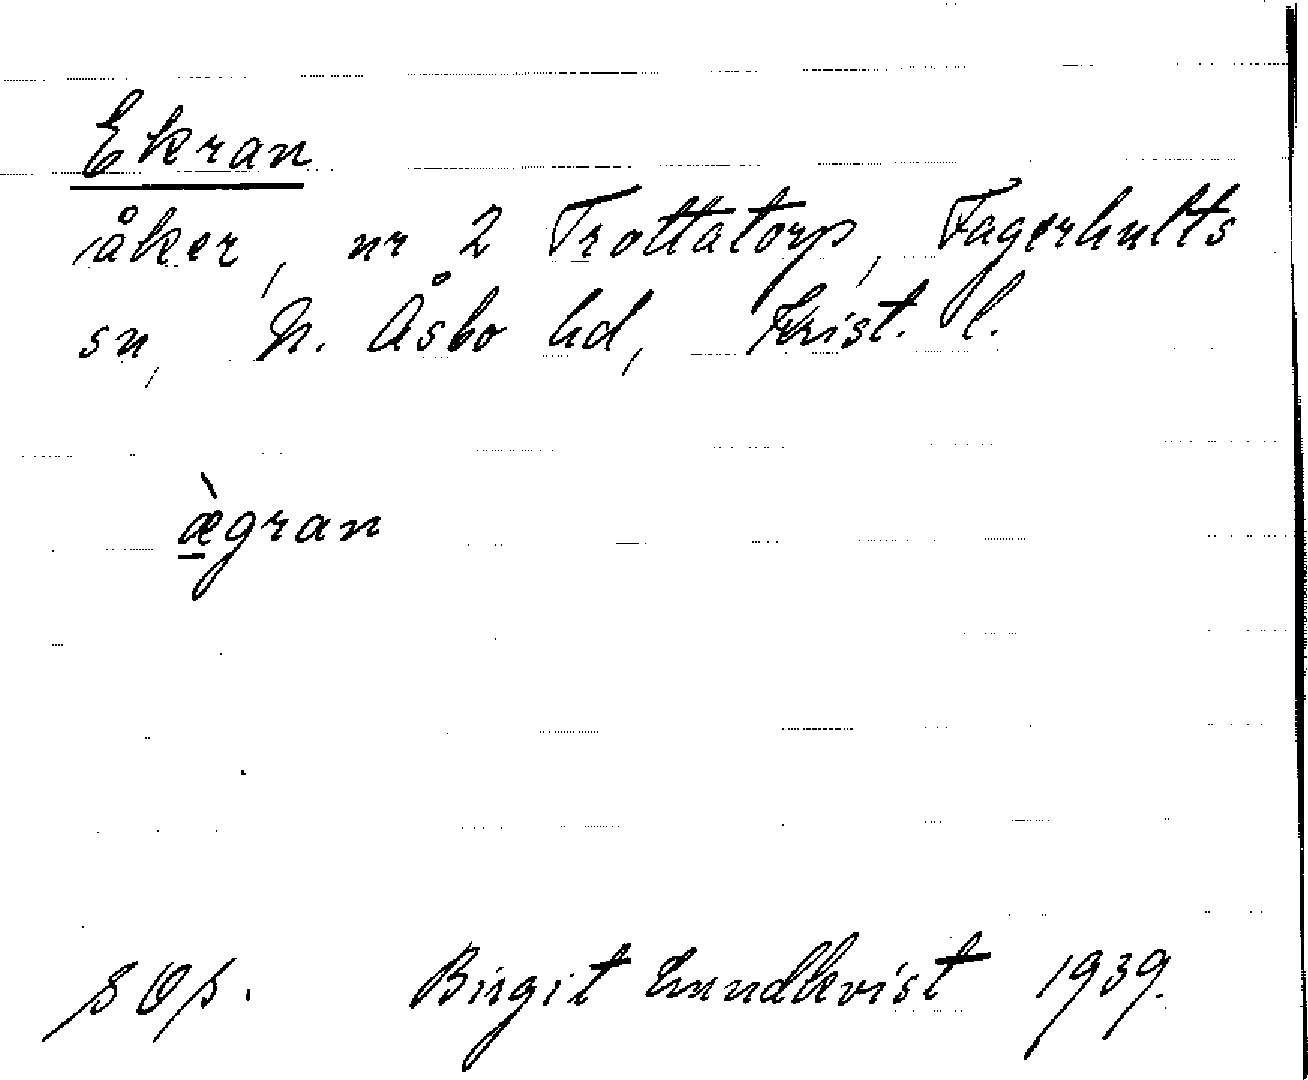 Ekran
åker, nr 2 Trottatorp, Fagerhults
sn, N. Åsbo hd, Krist. l.
æ̲̀gran
Birgit Lundkvist 1939.